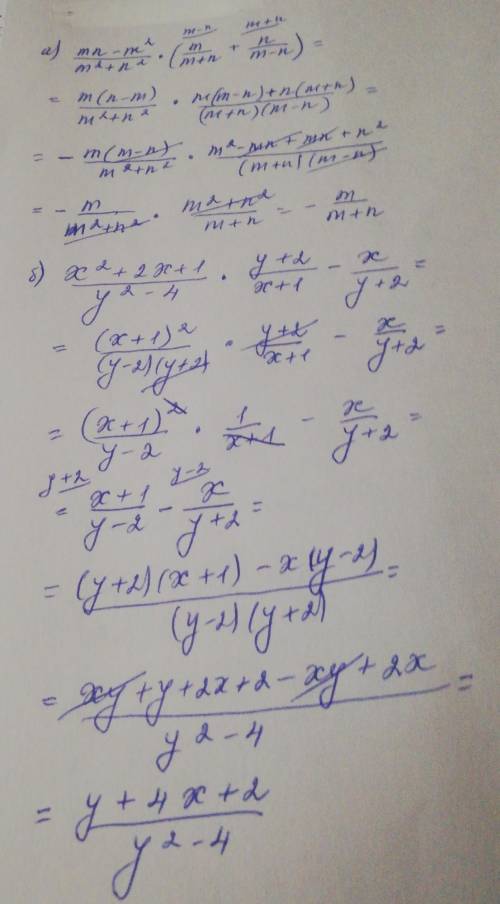 а) (mn - m²)/(m² + n²) · (m/(m+n) + n/(m-n)) =
= m(n-m)/(m²+n²) · (m(m-n)+n(m+n))/((m+n)(m-n)) =
= - m(m-n)/(m²+n²) · (m²-mn+mn+n²)/((m+n)(m-n))
= - m/(m²+n²) · (m²+n²)/(m+n) = - m/(m+n)
б) (x²+2x+1)/(y²-4) · (y+2)/(x+1) - x/(y+2) =
= (x+1)²/((y-2)(y+2)) · (y+2)/(x+1) - x/(y+2) =
= (x+1)²/(y-2) · 1/(x+1) - x/(y+2) =
y+2 y-2
= (x+1)/(y-2) - x/(y+2) =
= ((y+2)(x+1) - x(y-2))/((y-2)(y+2)) =
= (xy+y+2x+2-xy+2x)/(y²-4) =
= (y+4x+2)/(y²-4)